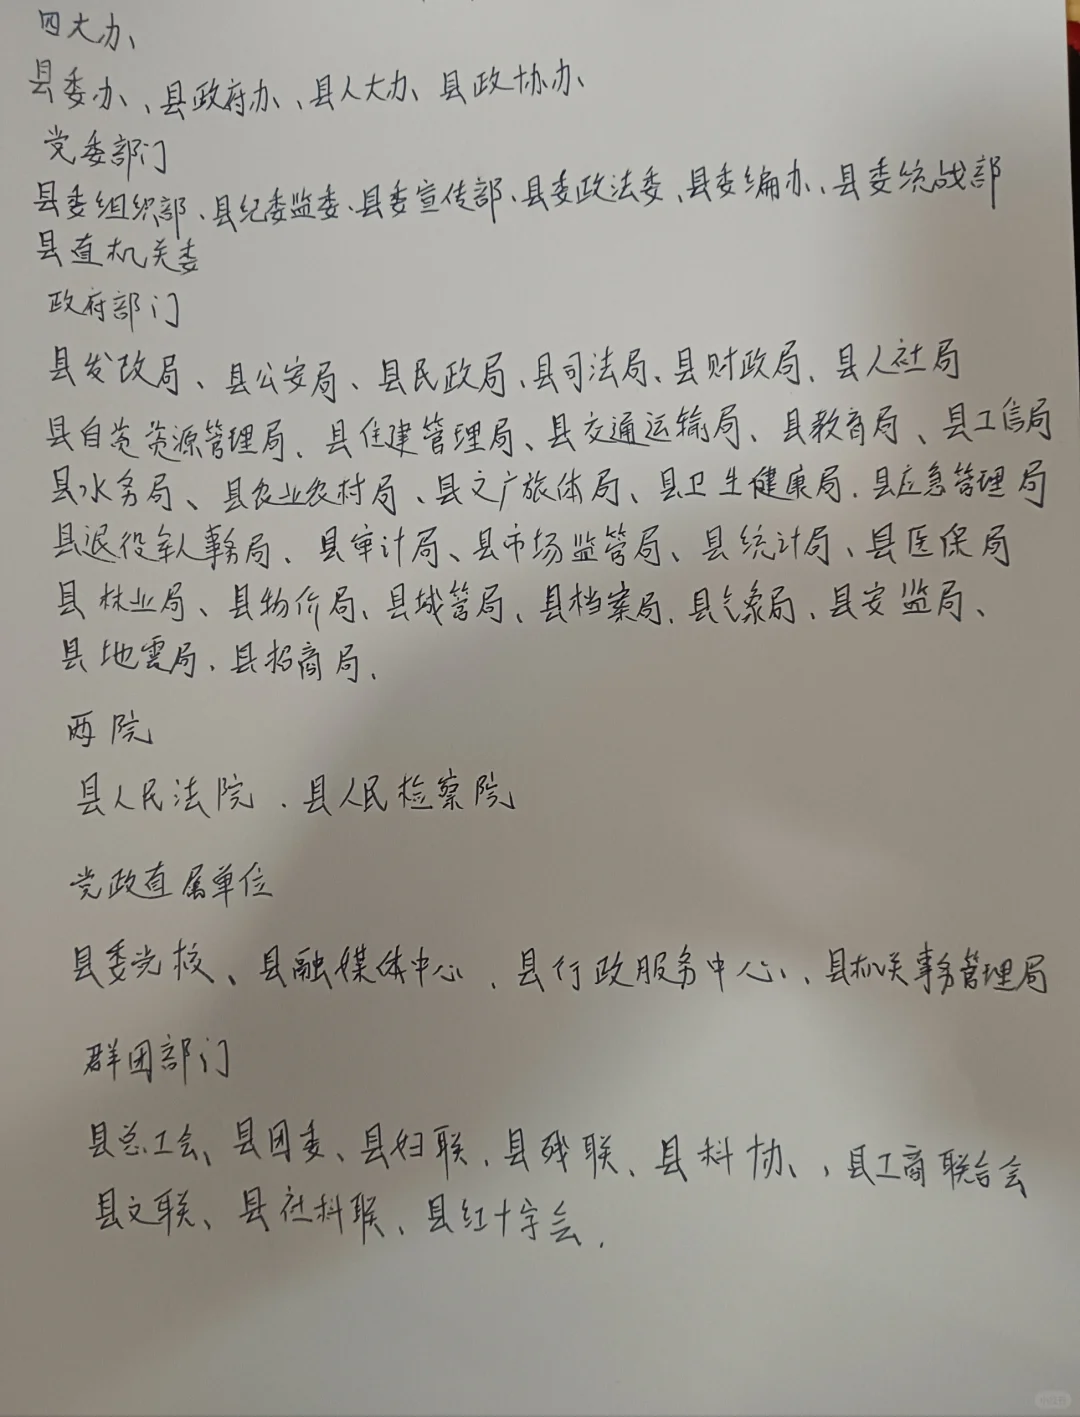 四大办、
县委办、、县政府办、、县人大办、县政协办、
党委部门
县委组织部、县纪委监委、县委宣传部、县委政法委、县委编办、县委统战部
县直机关委
政府部门
县发改局、县公安局、县民政局、县司法局、县财政局、县人社局
县自资资源管理局、县住建管理局、县交通运输局、县教育局、县工信局
县水务局、县农业农村局、县文广旅体局、县卫生健康局、县应急管理局
县退役军人事务局、县审计局、县市场监管局、县统计局、县医保局
县林业局、县物价局、县城管局、县档案局、县气象局、县安监局、
县地震局、县招商局、
两院
县人民法院、县人民检察院
党政直属单位
县委党校、县融媒体中心、县行政服务中心、、县机关事务管理局
群团部门
县总工会、县团委、县妇联、县残联、县科协、、县工商联合会
县文联、县社科联、县红十字会、